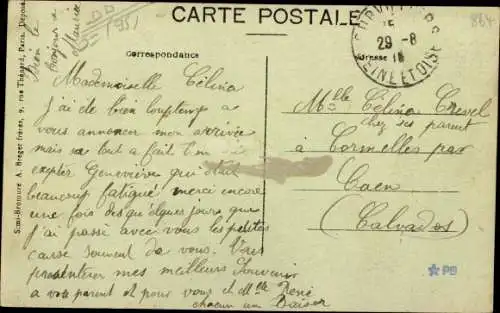 CARTE POSTALE
Correspondance
Adresse
29 - 8
SEINE ET OISE
864
Bien le
bonjour à
Maurice
Semi-Bromure A. Breger frères, 9, rue Thénard, Paris. Déposé
Mademoiselle Célina
J'ai de bien longtemps a
vous annoncer mon arrivée
mais sa tout a fait
expter Geneviève qui était
beaucoup fatiguée merci encore
une fois des quelques jours que
j'ai passé avec vous les petites
cause souvent de vous. Vous
présenterer mes meilleurs Souvenir
a votre parent et pour vous et Mlle René
chacun un Baiser
Mlle Célina Crevel
chez ses parent
à Cormelles par
Caen
(Calvados)
PB